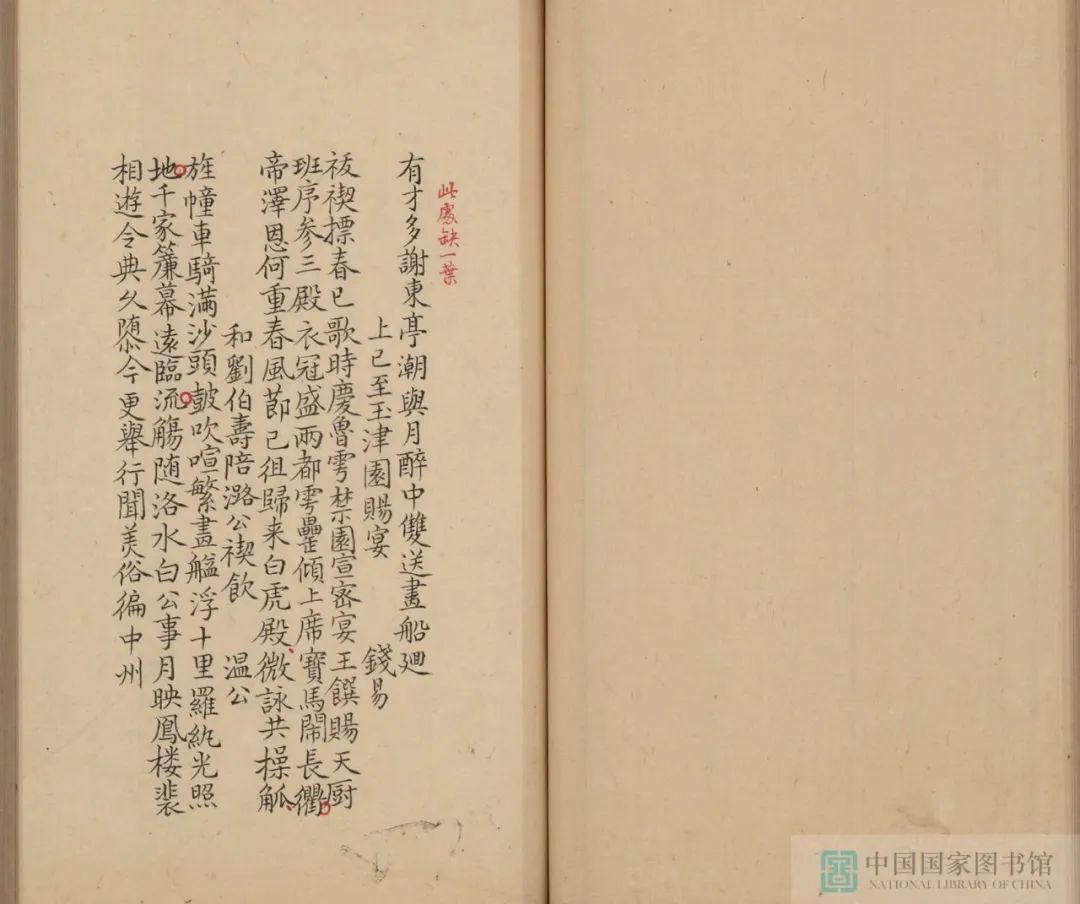 此處缺一葉
有才多謝東亭潮與月醉中雙送畫船廻
上已至玉津園賜宴 錢易
祓禊摽春已歌時慶魯雩禁園宣密宴王饌賜天厨
班序参三殿衣冠盛兩都雩罍傾上席寶馬鬧長衢
帝澤恩何重春風莭已徂歸来白虎殿微詠共操觚
和劉伯壽陪潞公禊飲 温公
旌幢車騎滿沙頭皷吹喧繁畫艗浮十里羅紈光照
地千家簾幕遠臨流觴随洛水白公事月映鳳楼裴
相遊令典乆隳今更舉行聞羙俗徧中州
中国国家图书馆
NATIONAL LIBRARY OF CHINA